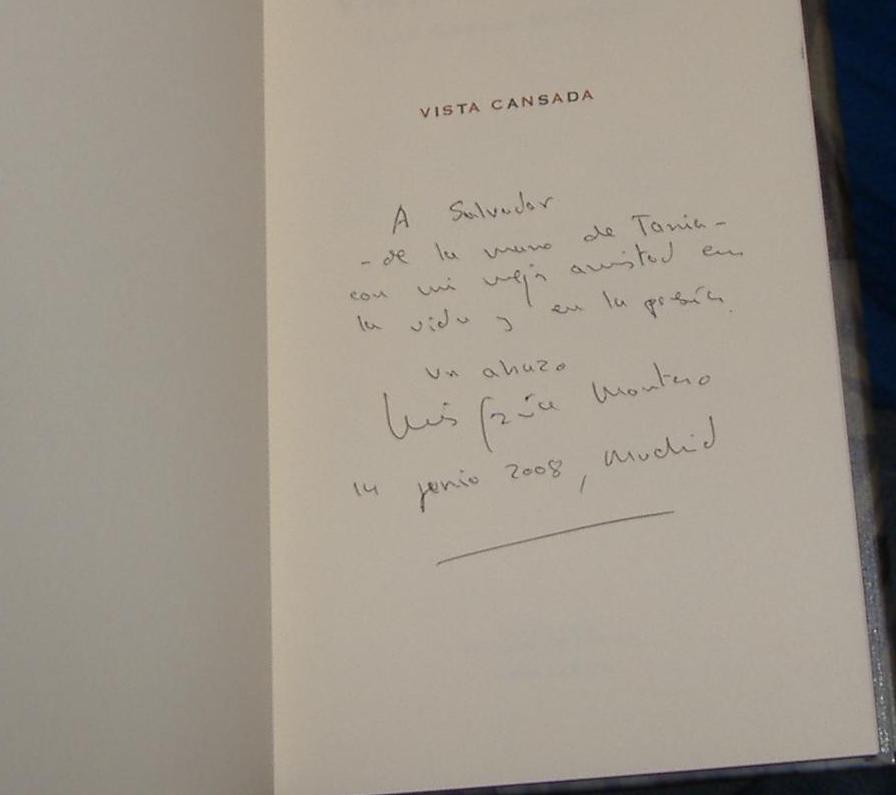 VISTA CANSADA
A Salvador
- de la mano de Tania -
con mi mejor amistad en
la vida y en la poesía.
Un abrazo
Luis García Montero
14 junio 2008, Madrid